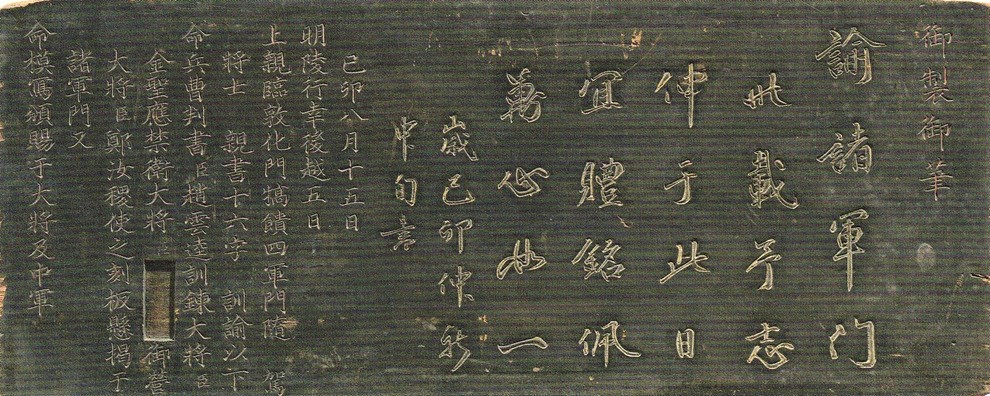 御製御筆
諭諸軍门
卌載予志
伸于此日
宜體銘佩
萬心如一
歲己卯仲秋
中旬書
己卯八月十五日
明陵行幸後越五日
上親臨敦化門犒饋四軍門隨 駕
將士 親書十六字 訓諭以下
命兵曹判書臣趙雲逵訓鍊大將臣
金聖應禁衛大將 御營
大將臣鄭汝稷使之刻板懸揭于
諸軍門又
命模寫頒賜于大將及中軍